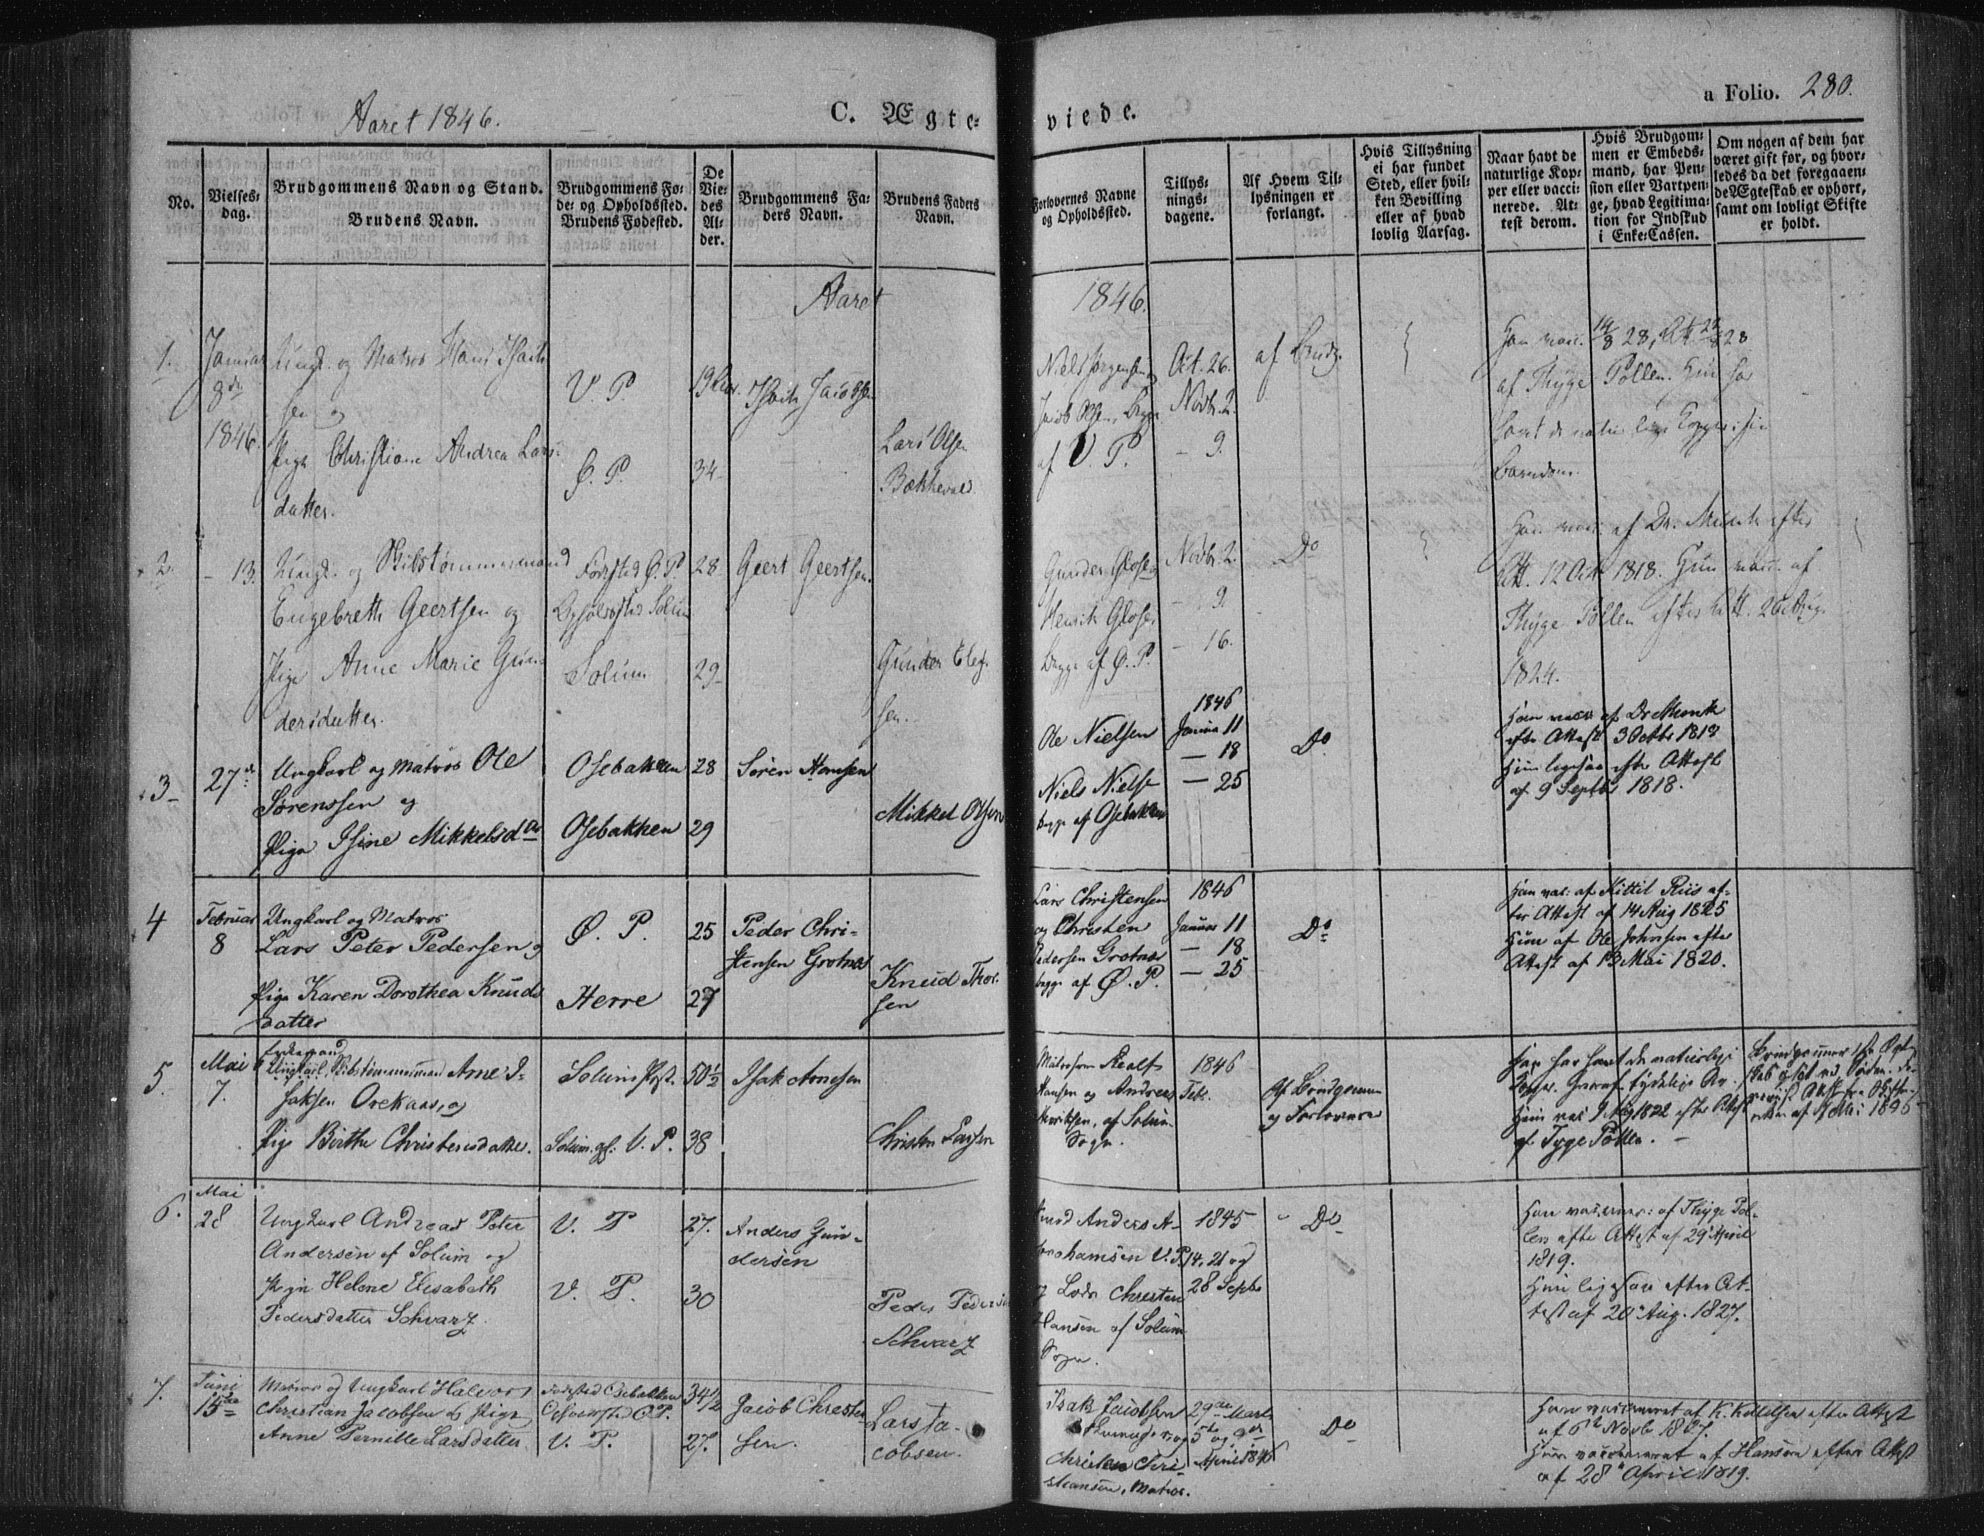 Aaret 1846.
C. Ægte-
viede.
a Folio. 280.
No.
Vielses-
dag.
Brudgommens Navn og Stand.
Brudens Navn.
Brudgommens Fø-
de- og Opholdssted.
Brudens Fødested.
De
Vie-
des
Al-
der.
Brudgommens Fa-
ders Navn.
Brudens Faders
Navn.
Forlovernes Navne
og Opholdssted.
Tillys-
nings-
dagene.
Af Hvem Til-
lysningen er
forlangt.
Hvis Tillysning
ei har fundet
Sted, eller hvil-
ken Bevilling
eller af hvad
lovlig Aarsag.
Naar havt de
naturlige Kop-
per eller vacci-
nerede. At-
test derom.
Hvis Brudgom-
men er Embeds-
mand, har Pen-
sion eller Vartpen-
ge, hvad Legitima-
tion for Indskud
i Enke-Cassen.
Om nogen af dem har
været gift før, og hvor-
ledes da det foregaaen-
de Ægteskab er ophørt,
samt om lovligt Skifte
er holdt.
Aaret
1846.
1.
Januar
8de
1846.
Ungk. og Matros Hans Isach-
sen og
Pige Christiane Andrea Lars-
datter.
V. P.
Ø. P.
34
Isach Jacobsen
Lars Olsen
Niels Jørgensen og
Jacob Olsen, begge
af V. P.
Oct. 26.
Novbr. 2.
- 9.
af Brudg.
Han vacc. 19/8 28,
af Thyge Pollen. Hun har
havt de naturlige Kopper i sin
Barndom.
2.
- 13.
Ungk. og Skibstømmermand
Engebreth Geertsen og
Pige Anne Marie Gun-
dersdatter.
Fødested Ø. P.
Opholdssted Solum
Solum
28
29
Geert Geertsen.
Gunder
sen.
Gunder
Henrik
begge af Ø. P.
Novbr. 2.
- 9.
- 16.
Do
Han vacc. af Dr. Munk efter
Att. 12 Oct 1818. Hun vacc. af
Thyge Pollen efter Att. 26 Aug.
1824.
3
27de
Ungkarl og Matros Ole
Sørenssen og
Pige Isine Mikkelsdtr
Osebakken
Osebakken
28
29
Søren Hansen
Mikkel Olsen
Ole Nielsen
Niels Nielse
begge af Osebakken
1846
Januar 11
- 18
- 25
Do
Han vacc af Dr Munk
efter Attest 3 Octbr 1818
Hun ligesaa efter Attest
af 9 Septbr 1818.
4
Februar
8
Ungkarl og Matros
Lars Peter Pedersen og
Pige Karen Dorothea Knuds
datter
Ø. P.
Herre
25
27
Peder Chri-
stensen Grotnes
Knud Thor-
sen
Lars Christensen
og Christen
Pedersen Grotnes
begge af Ø. P.
1846
Januar 11
- 18
- 25
Do
Han vac: af Kittil Riis ef-
ter Attest af 14 Aug 1825
Hun af Ole Johnsen efter
Attest af 13 Mai 1820.
5.
Mai
7.
Enkemand
Ungkarl, Skibstømmermand Arne I-
saksen Orekaas, og
Pige Birthe Christensdatter.
Solum
Solum. V. P.
50½
38
Isak Arnesen
Christen Larsen
Hansen og Andreas
Henriksen, af Solum
Sogn.
1846
Febr.
Af Brudgommen
og Forloverne
Han har havt de naturlige
Kopper.
Hun vac 9 Aug 1822 efter Attest
af Tyge Pollen.
6.
Mai
28
Ungkarl Andreas Peter
Andersen af Solum og
Pige Helene Elisabeth
Pedersdatter Schvarz.
V. P
V. P.
27.
30
Anders Gun-
dersen
Peder Pedersen
Schvarz
Anders A-
brahamsen V. P.
og Lods Christen
Hansen af Solum
Sogn.
1845
14, 21 og
28 Septbr
Do
Han vaccner: af Thyge Pol-
len efter Attest af 29 April
1819.
Hun ligesaa efter At-
test af 20 Aug. 1827.
7.
Juni
15de
Matros og Ungkarl Halvor
Christian Jacobsen og Pige
Anne Pernille Larsdatter
Fødested Osebakken
Opholdssted Ø P.
V. P.
34½
27.
Jacob Christen-
sen.
Lars Ja-
cobsen.
Isak Jacobsen
Christen Chri-
stiansen, Matros.
29de Marts
5te og
April 1846
Do
Han vaccineret af K. Kittilsen efter Attest
af 6te Novb 1827.
Hun vaccineret af Hansen efter Attest
af 28 April 1819.